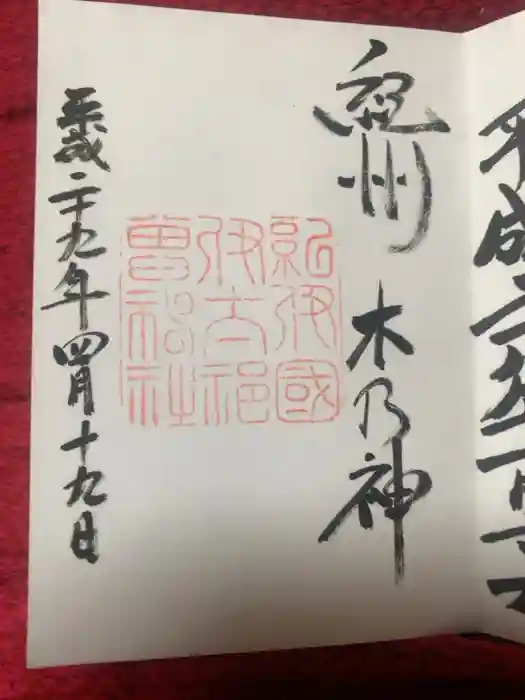 平成二
紀州
木乃神
紀伊國
伊太祁
曽神社
平成二十九年四月十九日